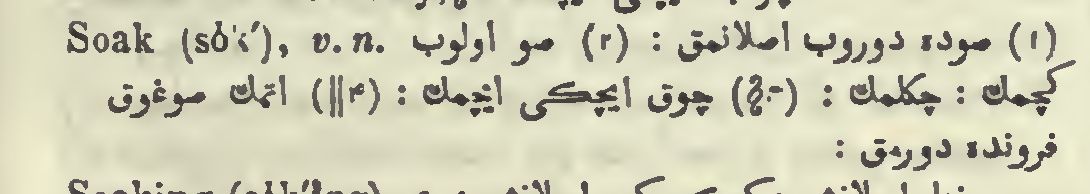 Soak (sōk′), v. n. (١) صوده دوروب اصلانمق : (٢) صو اولوب
كچمك : چكلمك : (-.٣) چوق ايچكى ايچمك : (٤||) اتمك صوغوق
فرونده دورمق :